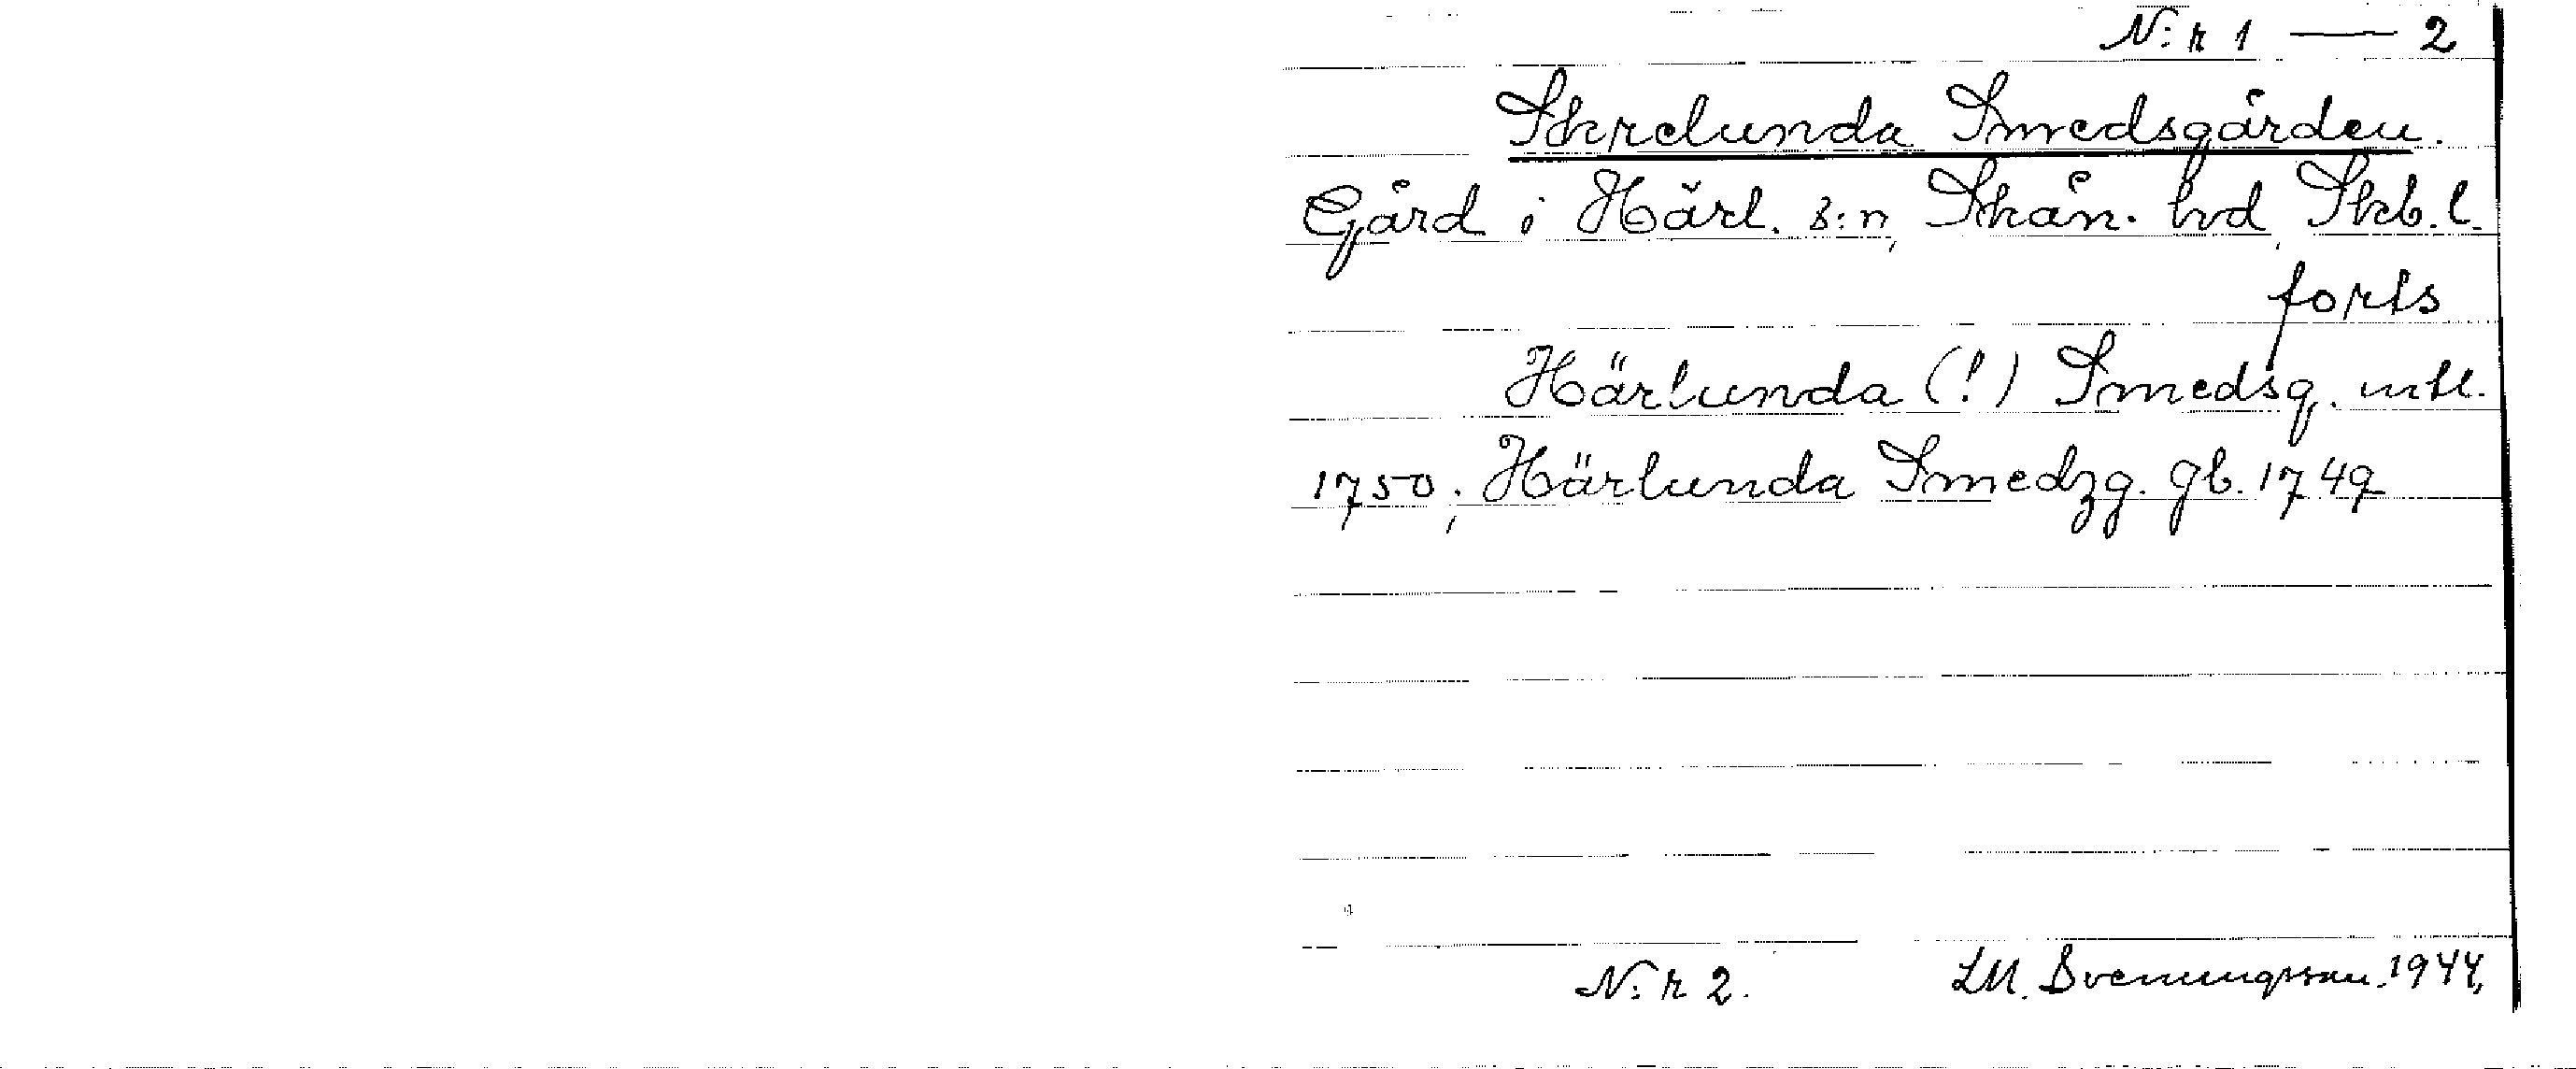 N:r 1 — 2
Skrelunda Smedsgården.
Gård i Härl. s:n, Skån. hd, Skb. l.
forts
Härlunda (!) Smedsg. mtl.
1750; Härlunda Smedzg. gb. 1749
N:r 2. LM. Svenungsson. 1944.